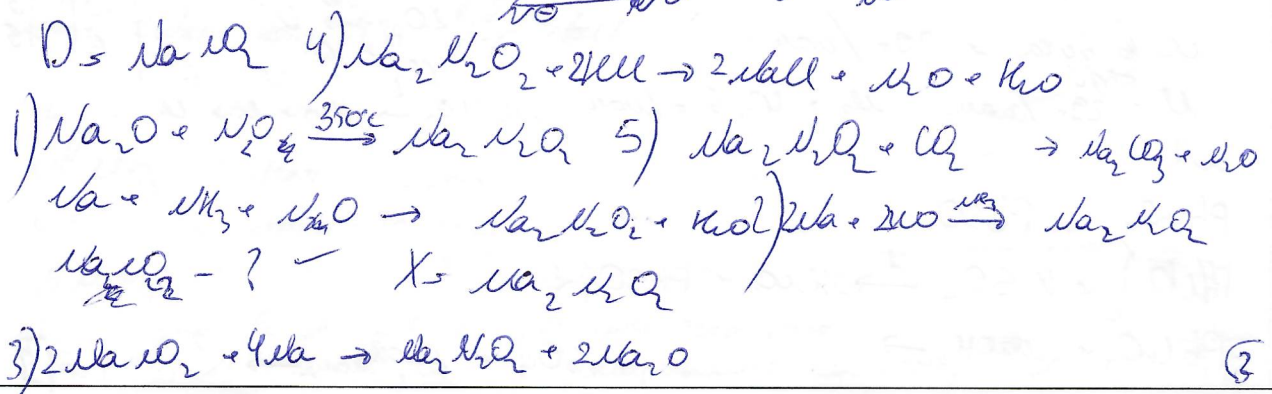 NO
D = NaNO2 4) Na2N2O2 + 2HCl → 2NaCl + N2O + H2O
1) Na2O + N2O 350°C → Na2N2O2 5) Na2N2O2 + CO2 → Na2CO3 + N2O
Na + NH3 + N2O → Na2N2O2 + H2O 2) 2Na + 2NO NH3 → Na2N2O2
NaNO2 - ? X = Na2N2O2
3) 2NaNO2 + 4Na → Na2N2O2 + 2Na2O
3